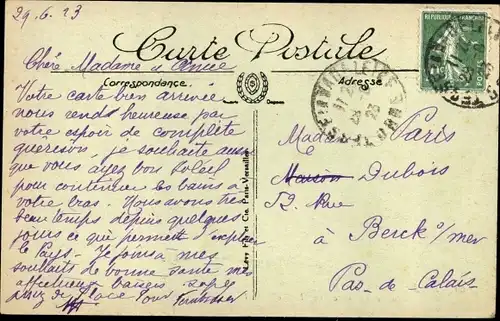 29.6.23
Carte Postale
REPUBLIQUE FRANCAISE
Chère Madame et Amie
Correspondance
Adresse
Votre carte bien arrivée
nous rends heureuse par
votre espoir de complète
guérison, je souhaite aussi
que vous ayez bon soleil
pour continuer les bains a
votre bras. Nous avons très
beau temps depuis quelques
jours ce que permet
le Pays. Je forme mes
souhaits de bonne santé mes
affectueux baisers
Place pour
Madame Paris
Maison Dubois
52 Rue
à Berck s/mer
Pas-de-Calais
Lévy Fils et Cie, Paris-Versailles